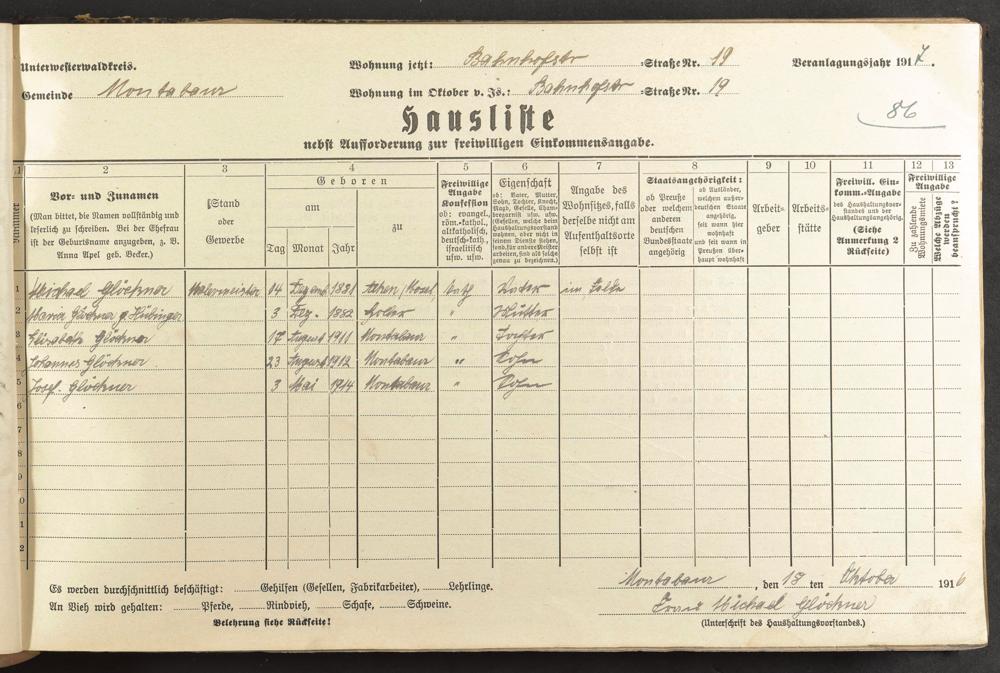 Unterwesterwaldkreis.
Wohnung jetzt: Bahnhofstr =Straße Nr. 19
Veranlagungsjahr 1917.
Gemeinde Montabaur
Wohnung im Oktober v. Js.: Bahnhofstr =Straße Nr. 19
86
Hausliste
nebst Aufforderung zur freiwilligen Einkommensangabe.
1 2 3 4 5 6 7 8 9 10 11 12 13
Nummer
Vor- und Zunamen
(Man bittet, die Namen vollständig und
leserlich zu schreiben. Bei der Ehefrau
ist der Geburtsname anzugeben, z. B.
Anna Apel geb. Becker.)
Stand
oder
Gewerbe
Geboren
am
Tag Monat Jahr
zu
Freiwillige
Angabe
Konfession
ob: evangel.,
röm.-kathol.,
altkatholisch,
deutsch-kath.,
israelitisch
usw. usw.
Eigenschaft
ob: Vater, Mutter,
Sohn, Tochter, Knecht,
Magd, Geselle, Cham-
bregarnist usw. usw.
(Gesellen, welche beim
Haushaltungsvorstand
wohnen, aber nicht in
seinem Dienste stehen,
sond. für andere Meister
arbeiten, sind als solche
genau zu bezeichnen.)
Angabe des
Wohnsitzes, falls
derselbe nicht am
Aufenthaltsorte
selbst ist
Staatsangehörigkeit:
ob Preuße
oder welchem
anderen
deutschen
Bundesstaate
angehörig
ob Ausländer,
welchem außer-
deutschen
Staate
angehörig,
seit wann hier
wohnhaft
und seit wann in
Preußen über-
haupt wohnhaft
Arbeit-
geber
Arbeits-
stätte
Freiwill. Ein-
komm.-Angabe
des Haushaltungsvor-
standes und der
Haushaltungsangehörig.
(Siehe
Anmerkung 2
Rückseite)
Freiwillige
Angabe
Zu zahlende
Wohnungsmiete
Welche Abzüge
werden
beansprucht?
1 Michael Glöckner Malermeister 14 1881 Kath Vater im Felde
2 Maria Glöckner g. Hübinger 3 Dez. 1882 " Mutter
3 Elisabeth Glöckner 17 August 1911 Montabaur " Tochter
4 Johannes Glöckner 23 August 1912 Montabaur " Sohn
5 Josef Glöckner 3 Mai 1914 Montabaur " Sohn
6
7
8
9
0
1
2
Es werden durchschnittlich beschäftigt: Gehilfen (Gesellen, Fabrikarbeiter), Lehrlinge.
An Vieh wird gehalten: Pferde, Rindvieh, Schafe, Schweine.
Belehrung siehe Rückseite!
Montabaur, den 13 ten Oktober 1916
Frau Michael Glöckner
(Unterschrift des Haushaltungsvorstandes.)